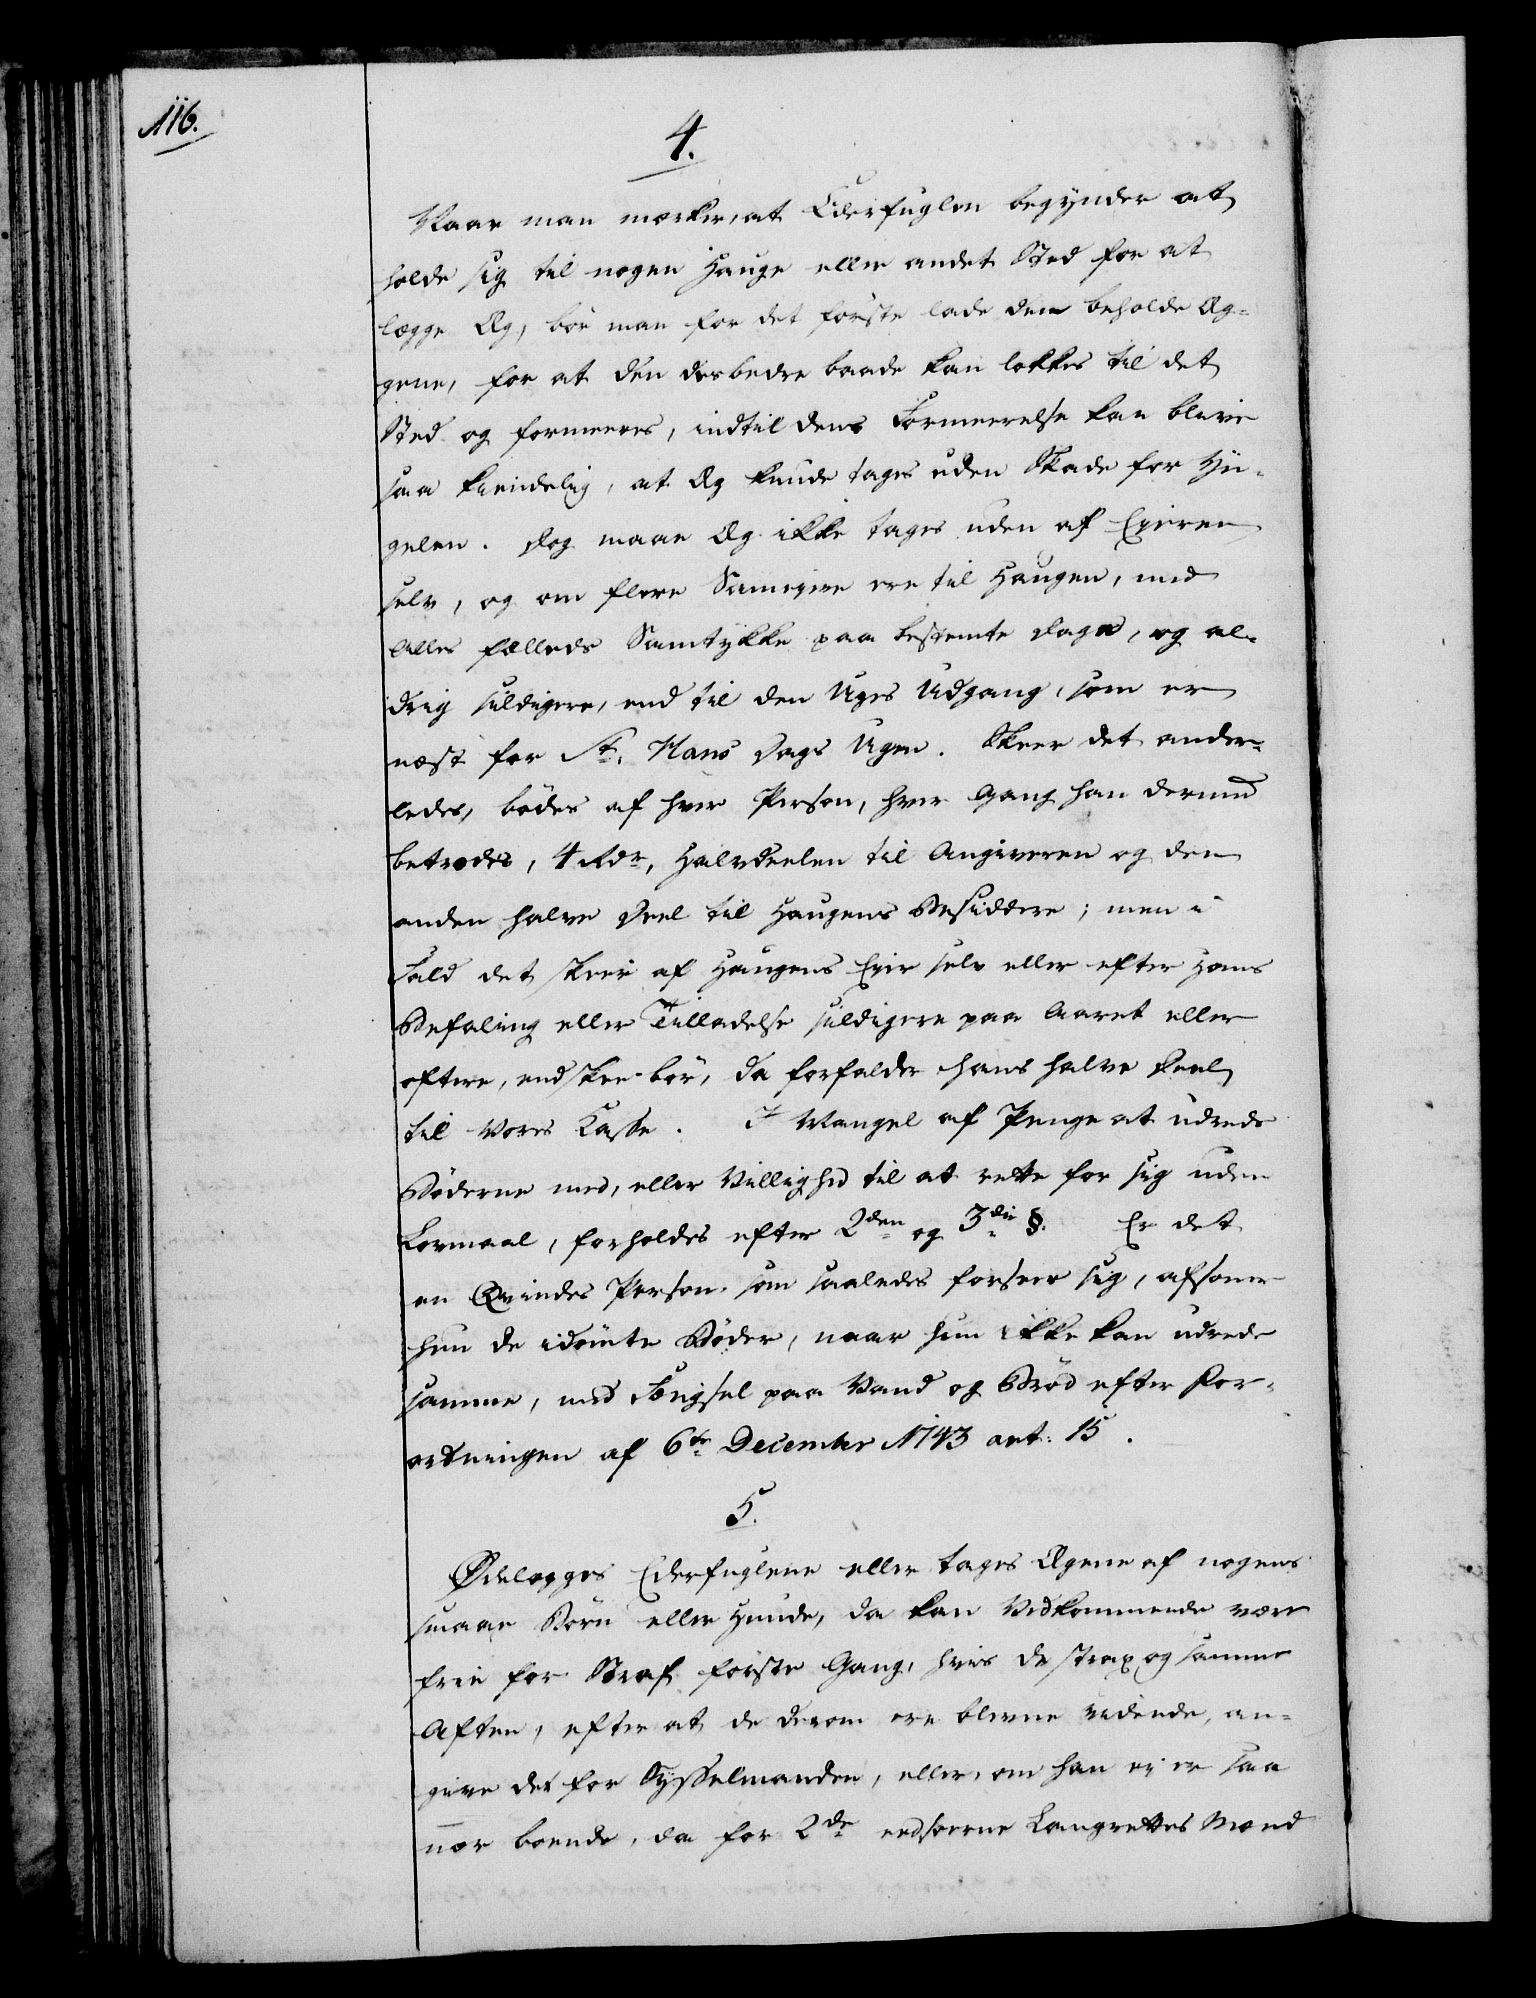 116.
4.
Naar man mærker, at Ederfuglen begynder at
holde sig til nogen Hauge eller andet Sted for at
lægge Æg, bör man for det förste lade dem beholde Æg-
gene, for at den desbedre baade kan lokkes til det
Sted og formeeres, indtil dens Formeerelse kan blive
saa kiendelig, at Æg kunde tages uden Skade for Yn-
gelen. Dog maae Æg ikke tages uden af Eyeren
selv, og om flere Sameyere ere til Haugen, med
Alles fælleds Samtykke paa bestemte Dage, og al-
drig sildigere, end til den Uges Udgang, som er
næst for St. Hans Dags Ugen. Skeer det ander-
ledes, bödes af hver Person, hver Gang han dermed
betrædes, 4 Rdr, Halvdeelen til Angiveren og den
anden halve Deel til Haugens Besiddere; men i
Fald det skeer af Haugens Eyer selv eller efter Hans
Befaling eller Tilladelse sildigere paa Aaret eller
oftere, end skee bör, da forfalder hans halve Deel
til Vores Casse. I Mangel af Penge at udrede
Böderne med, eller Villighed til at rette for sig uden
Lovmaal, forholdes efter 2den og 3die §. Er det
en Qvindes Person som saaledes forseer sig, afsoner
hun de idömte Böder, naar hun ikke kan udrede
samme, med Fængsel paa Vand og Bröd efter For-
ordningen af 6te December 1743 art: 15.
5.
Ödelægges Ederfuglene eller tages Æggene af nogens
smaae Börn eller Hunde, da kan Vedkommende være
frie for Straf förste Gang, hvis de strax og samme
Aften, efter at de derom ere blevne vidende, an-
give det for Sysselmanden, eller, om han ej er saa
nær boende, da for 2de eedsvorne Laugrettes Mænd